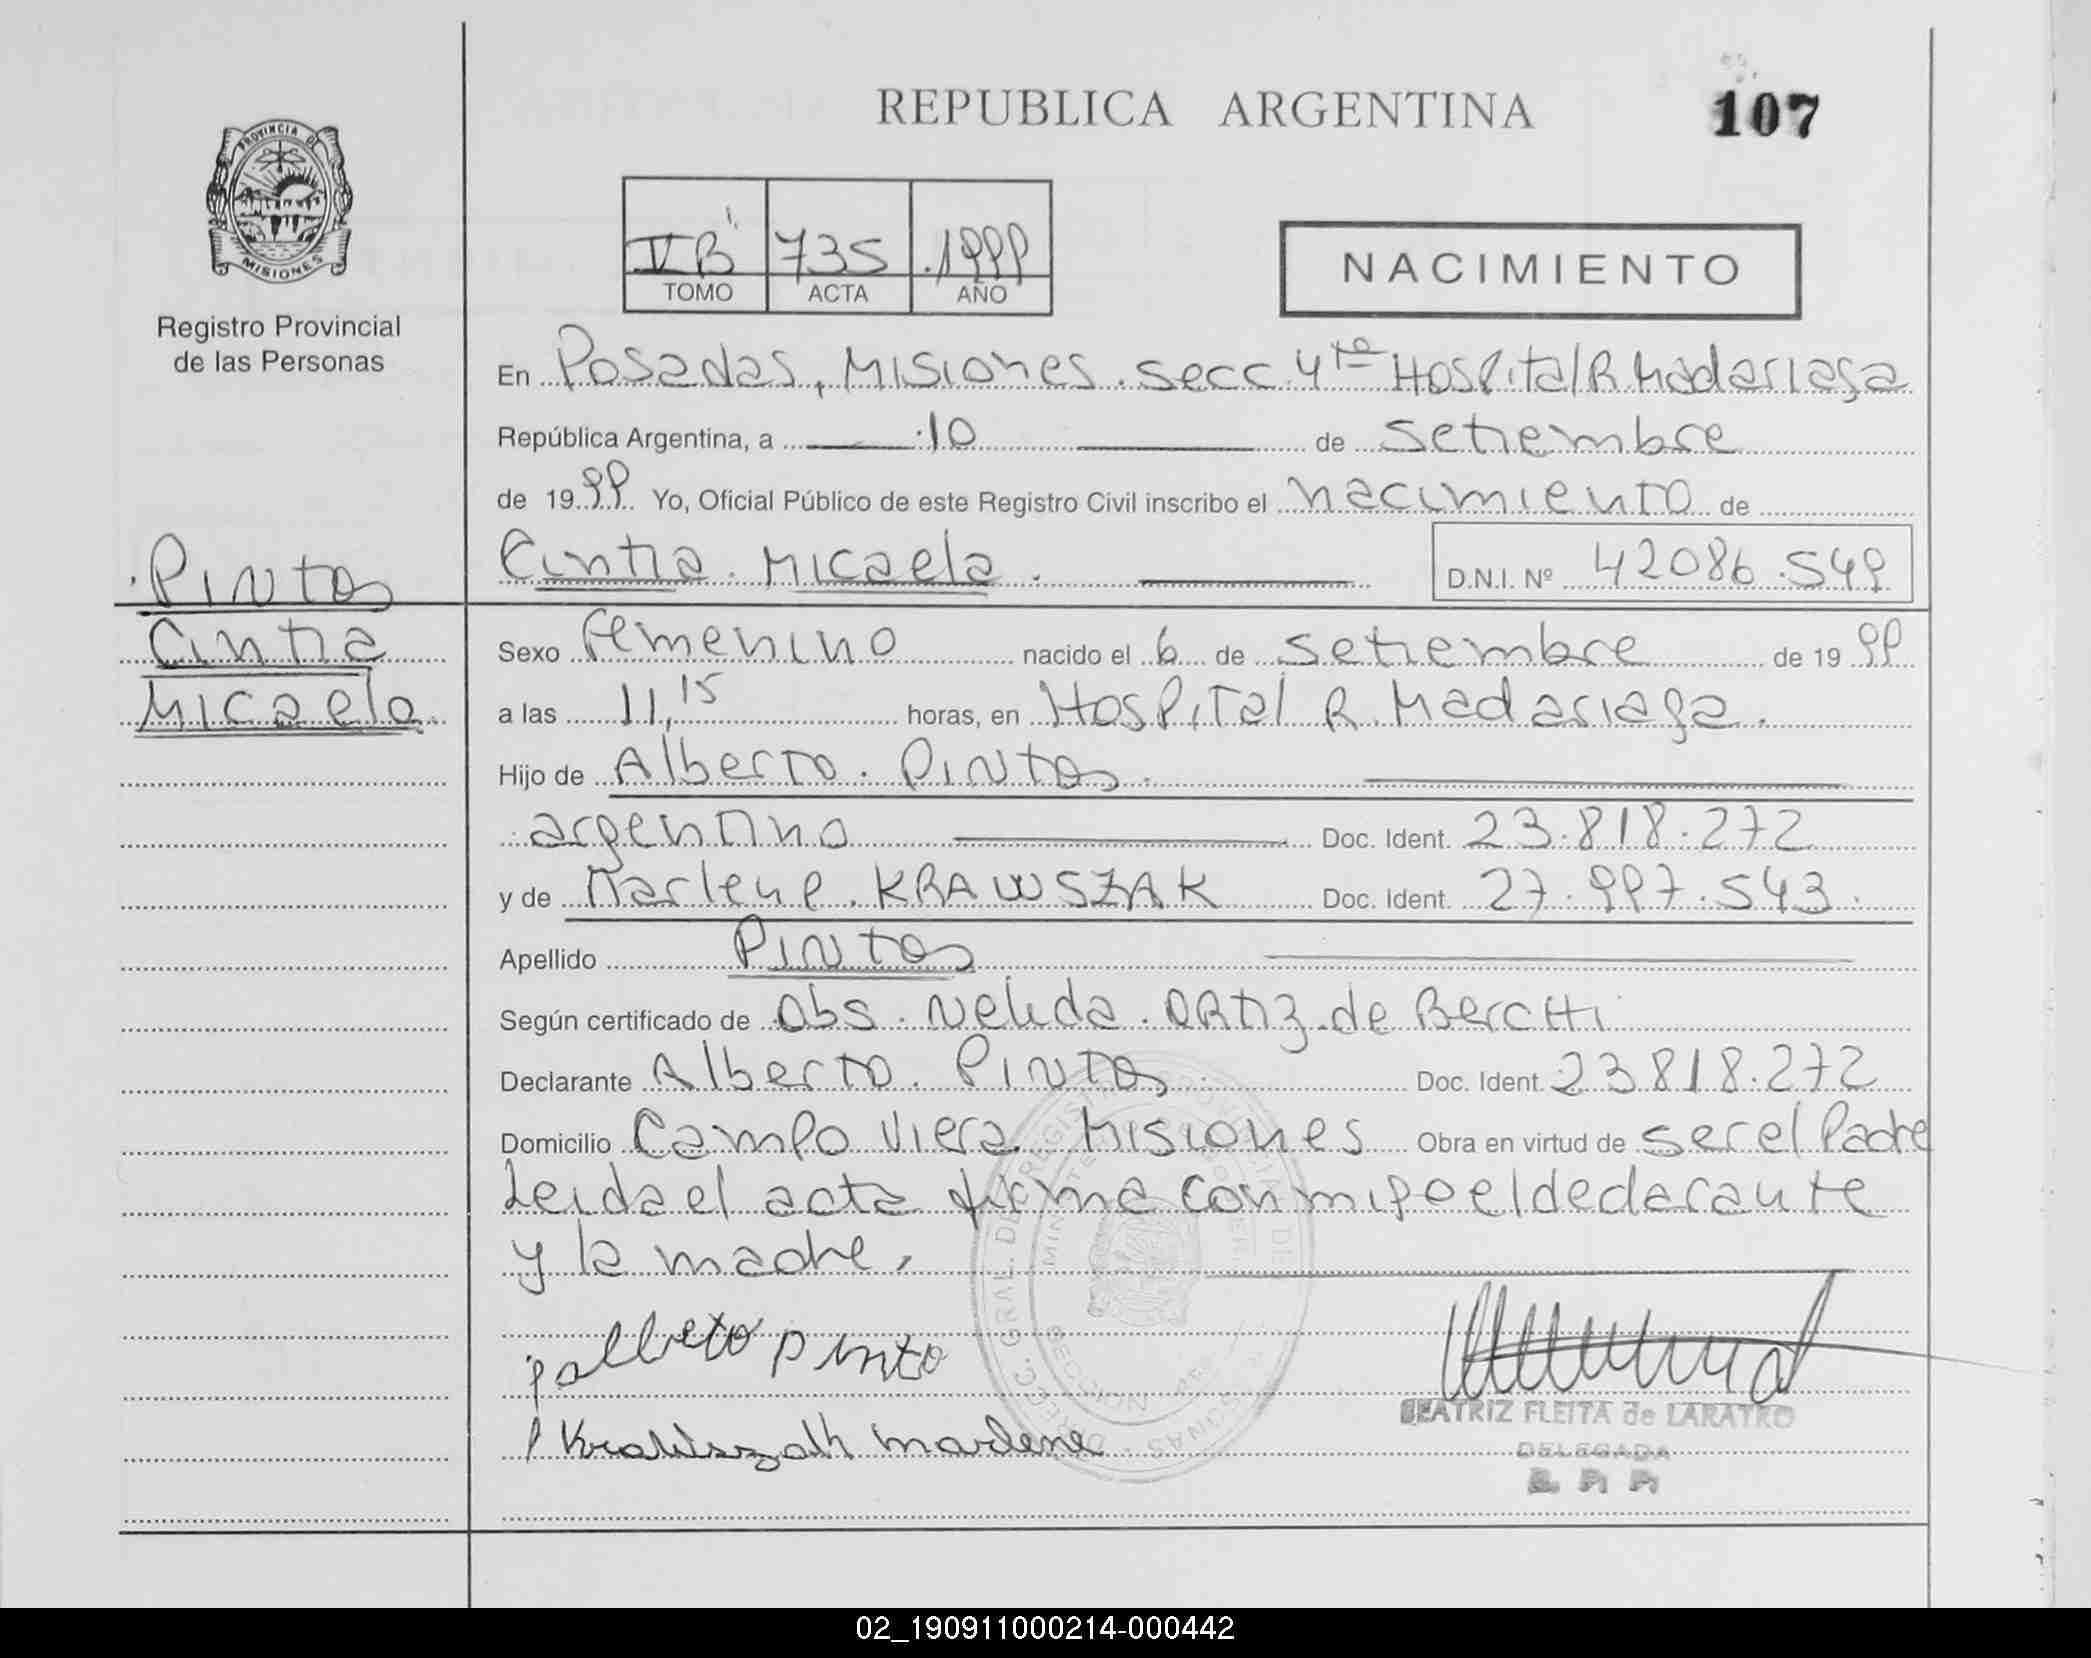 REPUBLICA ARGENTINA
107
PROVINCIA DE
MISIONES
Registro Provincial
de las Personas
V B' 735 1999
TOMO ACTA AÑO
NACIMIENTO
En Posadas, Misiones. secc. 4ta Hospital R Madariaga
República Argentina, a 10 de Setiembre
de 1999 Yo, Oficial Público de este Registro Civil inscribo el nacimiento de
Cintia Micaela. D.N.I. Nº 42086.549
Pintos
Cintia
Micaela
Sexo Femenino nacido el 6 de Setiembre de 1999
a las 11,15 horas, en Hospital R. Madariaga.
Hijo de Alberto. Pintos.
argentino Doc. Ident. 23.818.272
y de Marlene. KRAWSZAK Doc. Ident. 27.997.543.
Apellido Pintos
Según certificado de Obs. Nelida. ORtiz de
Declarante Alberto. Pintos. Doc. Ident. 23.818.272
Domicilio Campo Viera Misiones Obra en virtud de ser el Padre
Leida el acta firma conmigo el declarante
y la madre,
alberto pinto
Krawszak marlene
BEATRIZ FLEITA de LARATRO
DELEGADA
R. P. P.
DIRECC. GRAL. DE REGISTRO PROVINCIAL DE PERSONAS
02_190911000214-000442